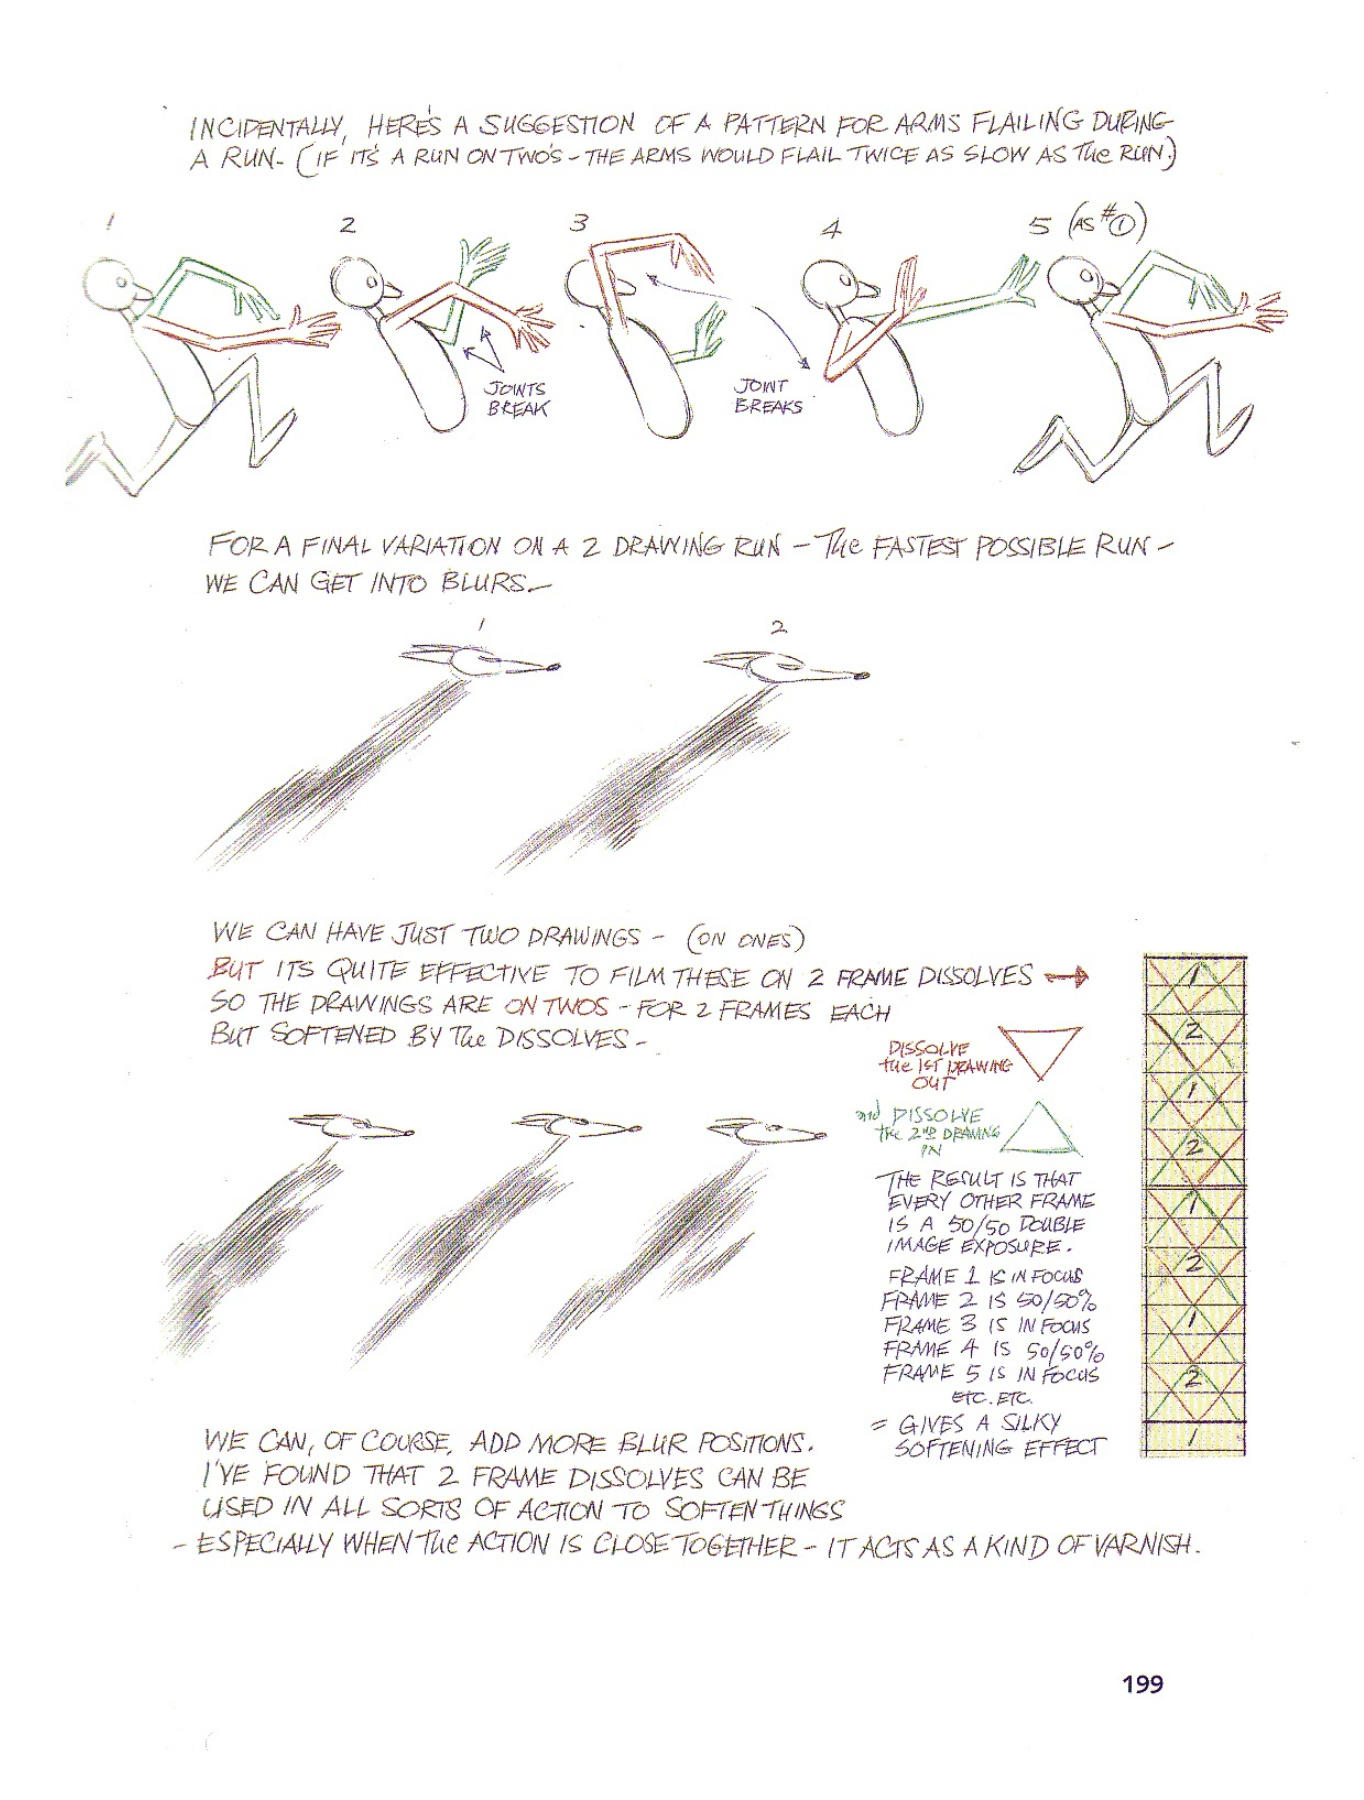 INCIDENTALLY, HERE'S A SUGGESTION OF A PATTERN FOR ARMS FLAILING DURING
A RUN- (IF IT'S A RUN ON TWO'S - THE ARMS WOULD FLAIL TWICE AS SLOW AS THE RUN.)
1
2
3
4
5 (AS #①)
JOINTS
BREAK
JOINT
BREAKS
FOR A FINAL VARIATION ON A 2 DRAWING RUN - THE FASTEST POSSIBLE RUN -
WE CAN GET INTO BLURS.-
1
2
WE CAN HAVE JUST TWO DRAWINGS - (ON ONES)
BUT ITS QUITE EFFECTIVE TO FILM THESE ON 2 FRAME DISSOLVES →
SO THE DRAWINGS ARE ON TWOS - FOR 2 FRAMES EACH
BUT SOFTENED BY THE DISSOLVES -
DISSOLVE
THE 1ST DRAWING
OUT
and DISSOLVE
THE 2ND DRAWING
IN
THE RESULT IS THAT
EVERY OTHER FRAME
IS A 50/50 DOUBLE
IMAGE EXPOSURE.
FRAME 1 IS IN FOCUS
FRAME 2 IS 50/50%
FRAME 3 IS IN FOCUS
FRAME 4 IS 50/50%
FRAME 5 IS IN FOCUS
ETC. ETC.
= GIVES A SILKY
SOFTENING EFFECT
1
2
1
2
1
2
1
2
1
WE CAN, OF COURSE, ADD MORE BLUR POSITIONS.
I'VE FOUND THAT 2 FRAME DISSOLVES CAN BE
USED IN ALL SORTS OF ACTION TO SOFTEN THINGS
- ESPECIALLY WHEN THE ACTION IS CLOSE TOGETHER - IT ACTS AS A KIND OF VARNISH.
199